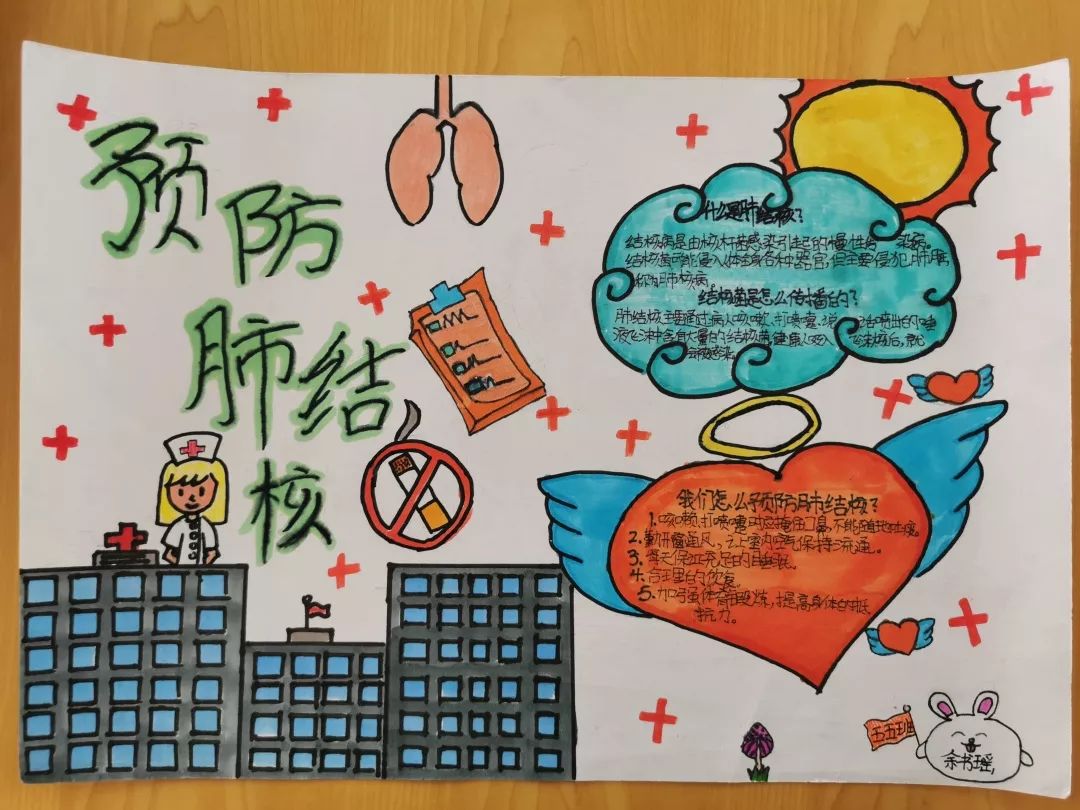 预防
肺结
核
什么是肺结核？
结核病是由结核杆菌感染引起的慢性传染病。
结核菌可能侵入人体全身各种器官，但主要侵犯肺脏，
称为肺结核病。
结核菌是怎么传播的？
肺结核主要通过病人咳嗽、打喷嚏、说话喷出的唾
液飞沫中含有大量的结核菌，健康人吸入飞沫后，就
会被感染。
我们怎么预防肺结核？
1. 咳嗽、打喷嚏时应掩住口鼻，不能随地吐痰。
2. 勤开窗通风，让室内空气保持流通。
3. 每天保证充足的睡眠。
4. 合理的饮食。
5. 加强体育锻炼，提高身体的抵
抗力。
五五班
余书瑶